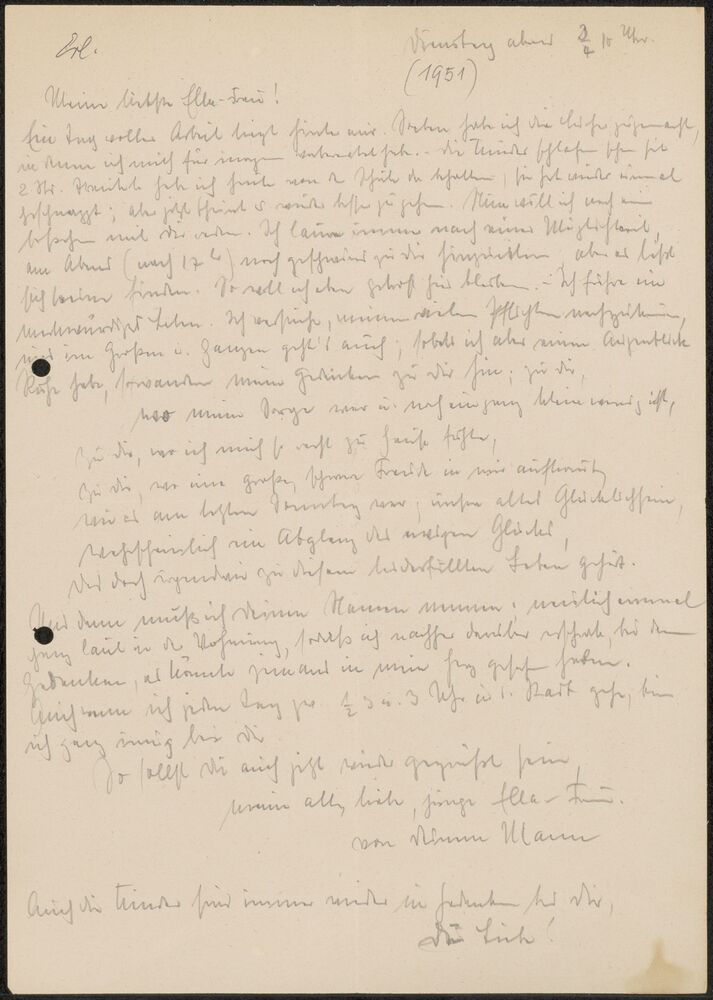 Erl.
Dienstag abend 3/4 10 Uhr.
(1951)
Meine liebste Ella-Frau!
Ein Tag voller Arbeit liegt hinter mir. Soeben habe ich die Küche zugemacht,
in denen ich mich für morgen vorbereitet habe. - die Kinder schlafen schon seit
2 Std. habe ich heute von der Schule da behalten, sie hat wieder einmal
; aber jetzt scheint es wieder besser zu gehen. Nun will ich noch ein
mit dir reden. Ich laure immer nach einer Möglichkeit,
am Abend (nach 17 h) noch geschwind zu dir hinzueilen, aber es läßt
sich keine finden. So soll ich eben getrost hier bleiben. - Ich führe ein
merkwürdiges Leben. Ich versuche, meinen vielen Pflichten nachzukommen,
und im Großen u. Ganzen geht's auch; sobald ich aber einen Augenblick
Ruhe habe, so wandern meine Gedanken zu dir hin; zu dir,
wo meine Sorge war u. noch ein ganz klein wenig ist,
zu dir, wo ich mich so recht zu Hause fühle,
zu dir, wo eine große, schöne Freude in mir aufkommt,
wie es am letzten Sonntag war; unser altes Glücklichsein,
wahrscheinlich ein Abglanz des ewigen Glücks,
das doch irgendwie zu diesem leiderfüllten Leben gehört.
Und dann muß ich deinen Namen nennen, neulich einmal
ganz laut in der Wohnung, sodaß ich nachher darüber erschrak, bei dem
Gedanken, es könnte jemand in mein Herz gesehen haben.
Auch wenn ich jeden Tag zw. 1/2 3 u. 3 Uhr in d. Stadt gehe, bin
ich ganz innig bei dir.
So sollst du auch jetzt wieder gegrüßt sein,
meine alte, liebe, junge Ella-Frau.
von deinem Mann
Auch die Kinder sind immer wieder in Gedanken bei dir,
du Liebe!